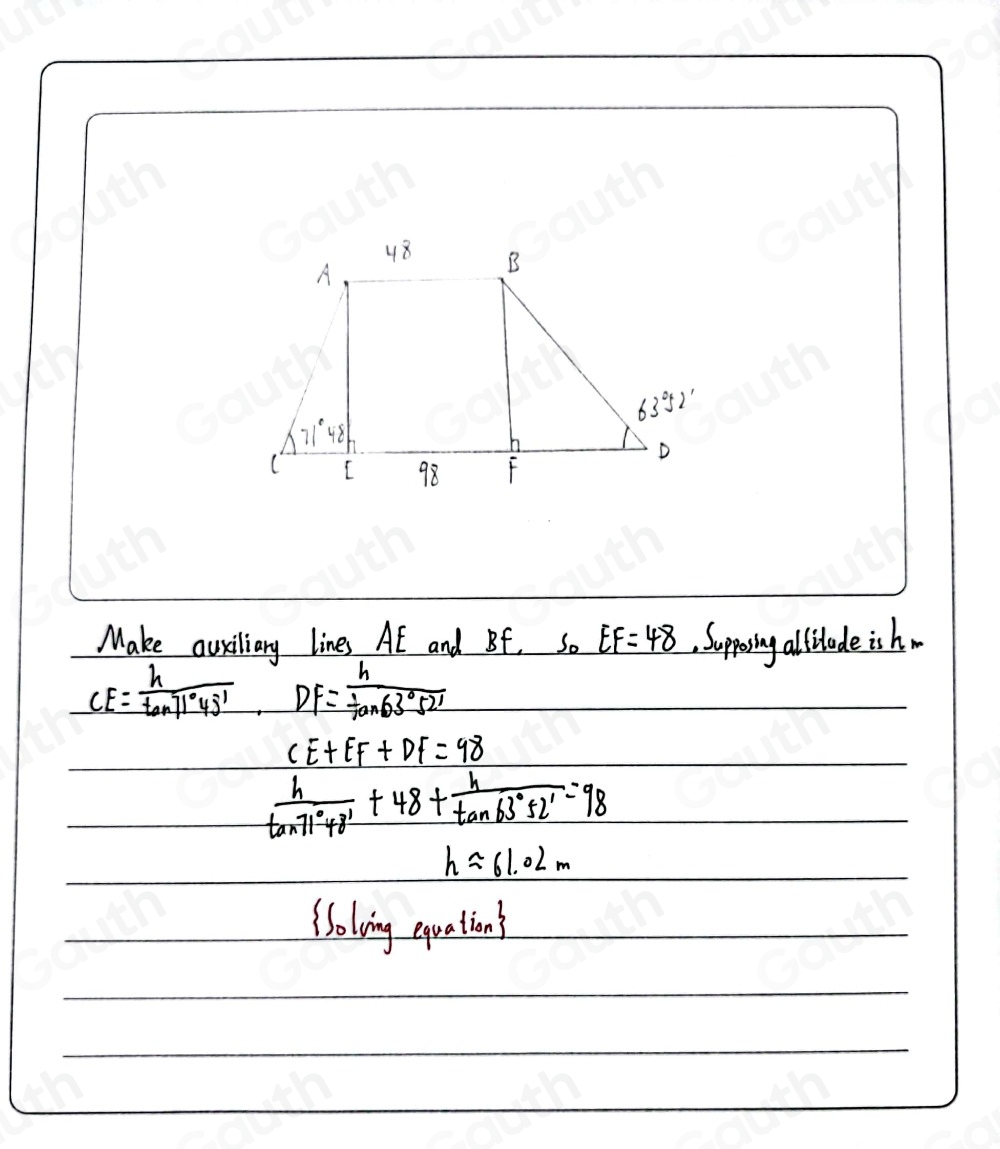 48
A B
71°48 63°52'
C E 98 F D
Make auxiliary lines AE and BF. So EF=48. Supposing altitude is h m
CE=h/tan71°48'. DF=h/tan63°52'
CE+EF+DF=98
h/tan71°48' + 48 + h/tan63°52' = 98
h≈61.02 m
{Solving equation}
Gauth